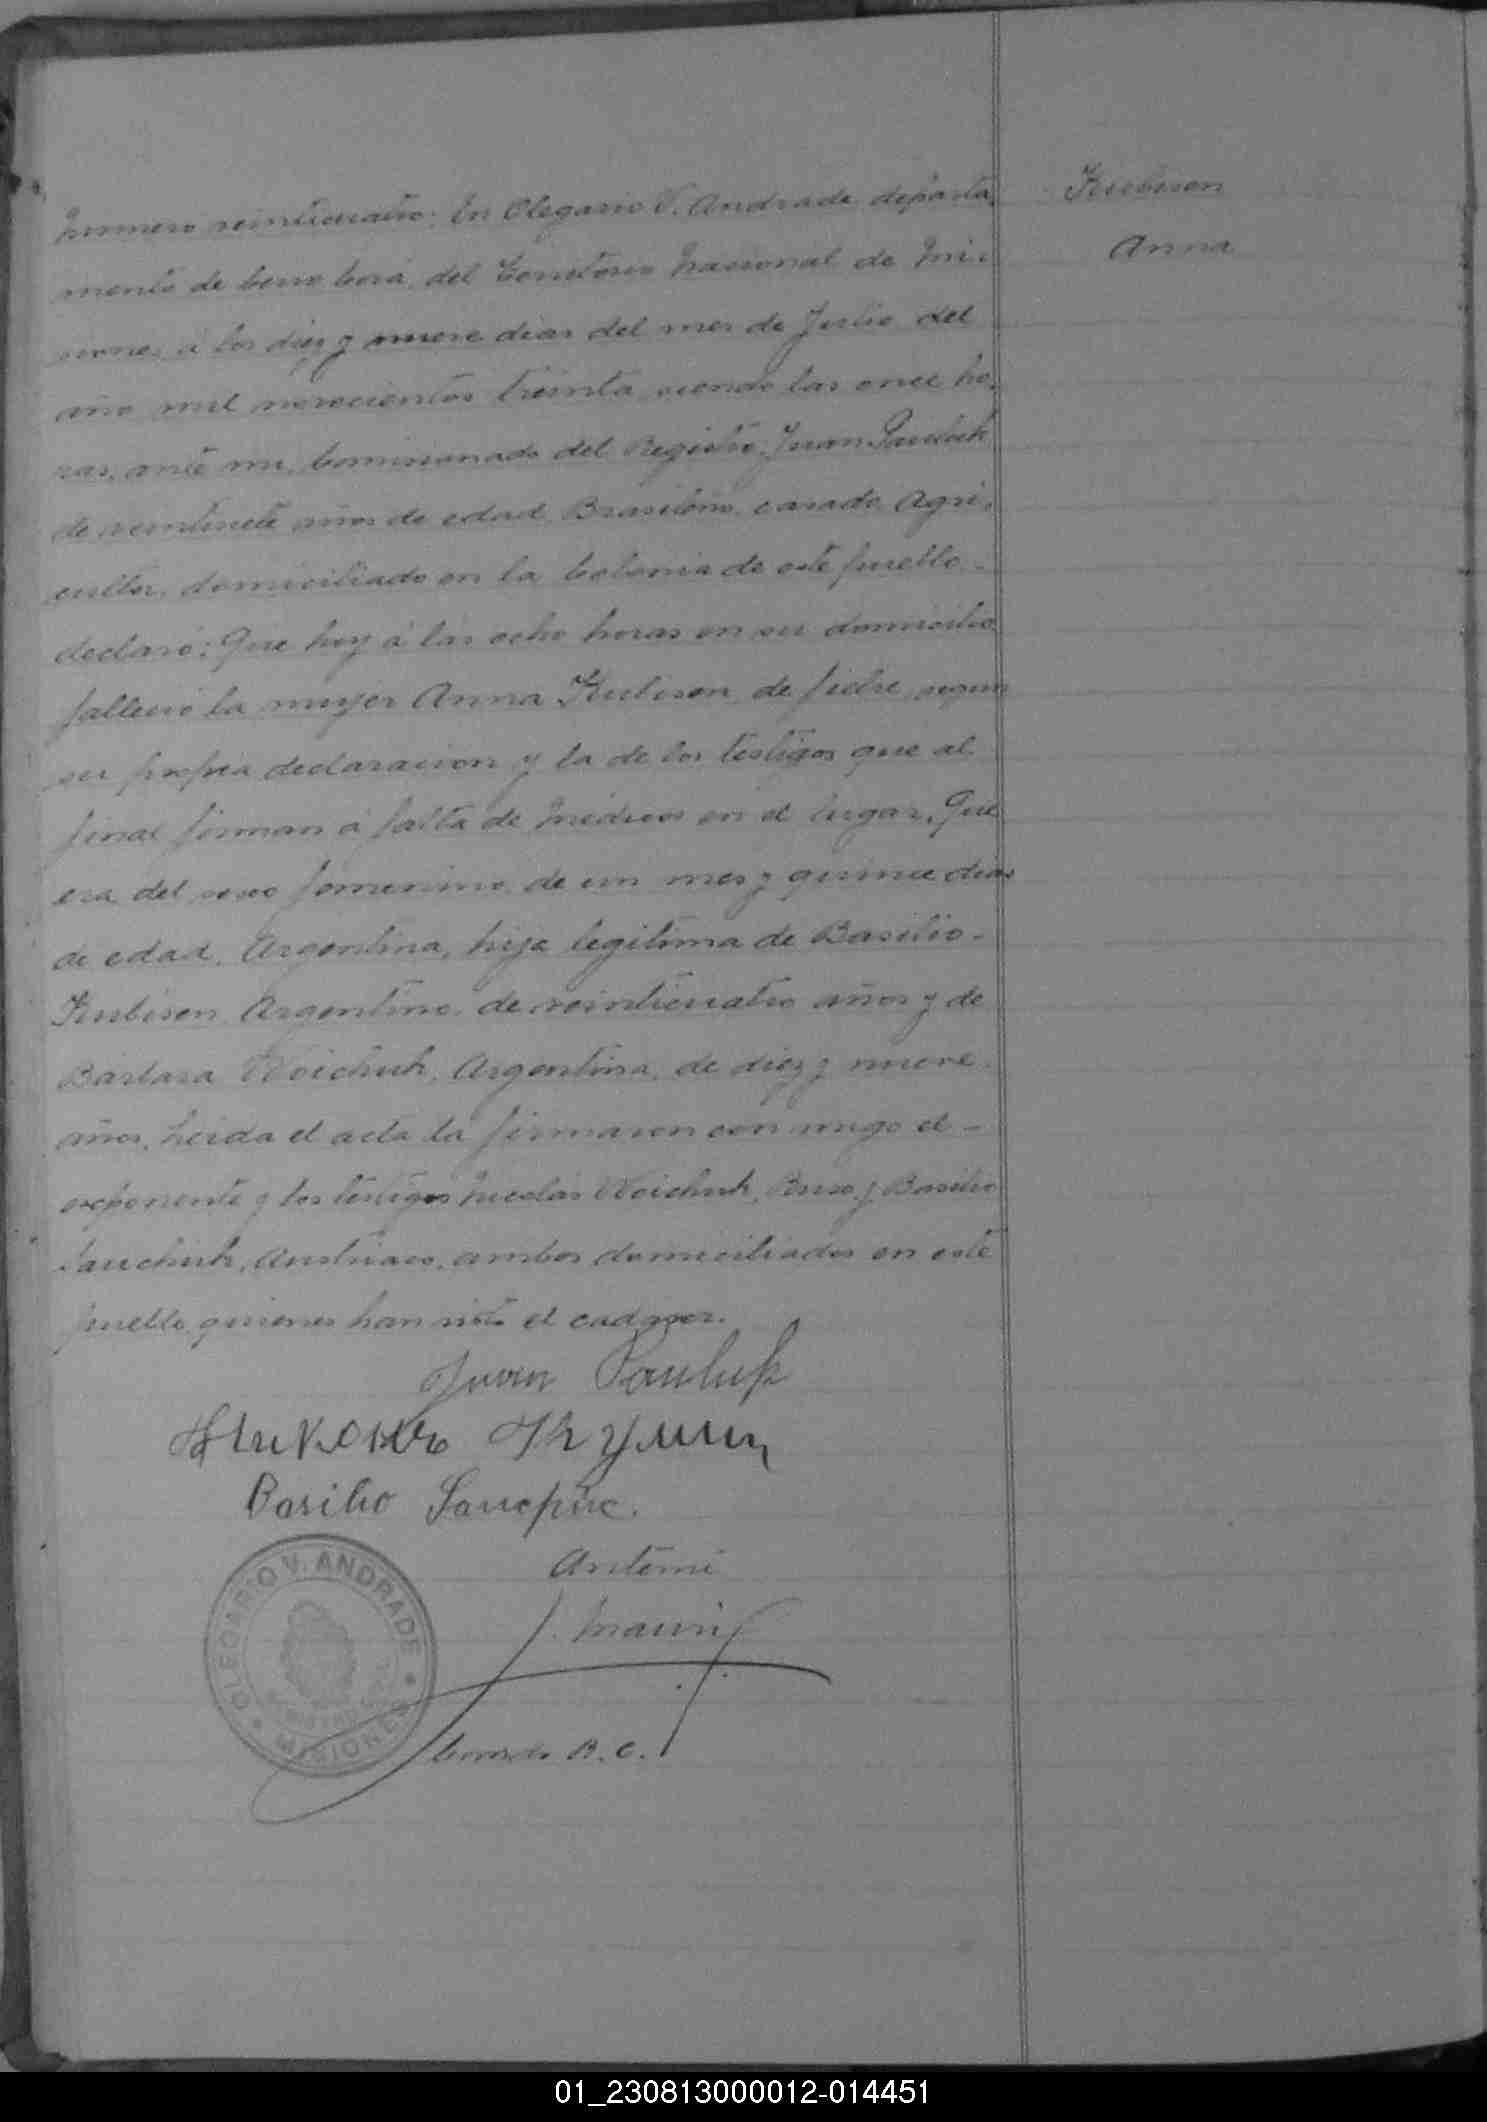 Kubisen
Anna
Numero veinticuatro. En Olegario V. Andrade departa-
mento de Cerro Corá, del Territorio Nacional de Mi-
siones á los diez y nueve dias del mes de Julio del
año mil novecientos treinta siendo las once ho-
ras, ante mi, Comisionado del Registro, Juan Pauluk
de veintisiete años de edad, Brasileño, casado, Agri-
cultor, domiciliado en la Colonia de este pueblo -
declaró: Que hoy á las ocho horas en su domicilio
falleció la mujer Anna Kubisen, de fiebre, segun
su propia declaracion y la de los testigos que al
final firman á falta de Médicos en el lugar, Que
era del sexo femenino, de un mes y quince dias
de edad, Argentina, hija legitima de Basilio -
Kubisen, Argentino, de veinticuatro años y de
Barbara Woichuk, Argentina, de diez y nueve
años. Leida el acta la firmaron con migo el -
exponente y los testigos Nicolás Woichuk, Ruso y Basilio
Sauchuk, Austriaco, ambos domiciliados en este
pueblo, quienes han visto el cadaver.
Juan Pauluk
Basilio
Antemi
J. Mauri
Comsdo R. C.
OLEGARIO V. ANDRADE
MISIONES
01_230813000012-014451